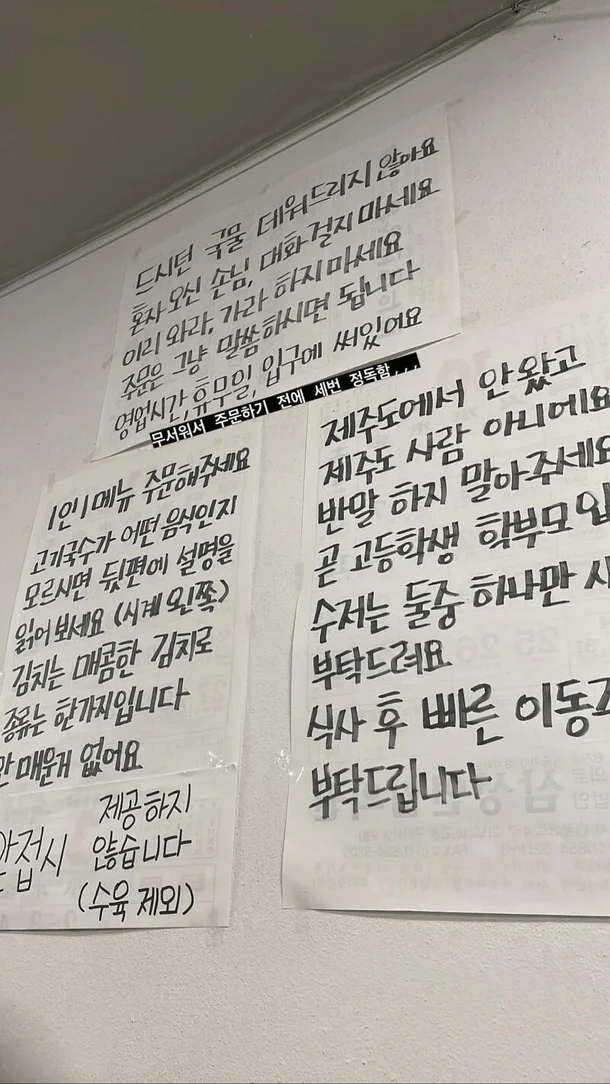 드시던 국물 데워드리지 않아요
혼자 오신 손님, 대화 걸지 마세요
이리 와라, 가라 하지마세요
주문은 그냥 말씀하시면 됩니다
영업시간, 휴무일, 입구에 써있어요
무서워서 주문하기 전에 세번 정독함,,,
1인 1메뉴 주문해주세요
고기국수가 어떤 음식인지
모르시면 뒷편에 설명을
읽어보세요 (시계 왼쪽)
김치는 매콤한 김치로
종류는 한가지입니다
안 매운거 없어요
앞접시
제공하지
않습니다
(수육 제외)
제주도에서 안 왔고
제주도 사람 아니에요
반말 하지 말아주세요
곧 고등학생 학부모입
수저는 둘중 하나만 사
부탁드려요
식사 후 빠른 이동
부탁드립니다